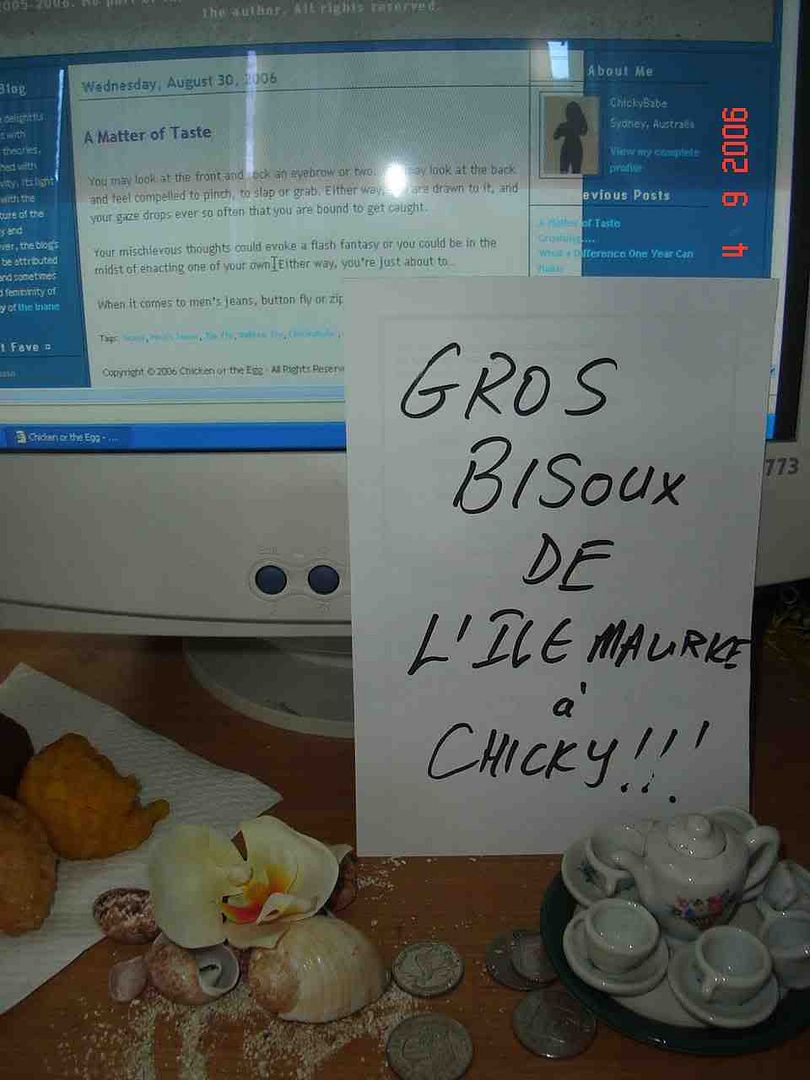 2005-2006. No part of
the author. All rights reserved.
Blog
delightful
with
theories,
with
light
with the
ture of the
y and
ver, the blog's
be attributed
and sometimes
femininity of
y of the Inane
t Fave
Wednesday, August 30, 2006
A Matter of Taste
You may look at the front and an eyebrow or two. may look at the back
and feel compelled to pinch, to slap or grab. Either way, are drawn to it, and
your gaze drops ever so often that you are bound to get caught.
Your mischievous thoughts could evoke a flash fantasy or you could be in the
midst of enacting one of your own. Either way, you're just about to...
When it comes to men's jeans, button fly or zip
Tags:
Copyright © 2006 Chicken or the Egg - All Rights Reserve
About Me
ChickyBabe
Sydney, Australia
View my complete
profile
evious Posts
A Matter of Taste
What a Difference One Year Can
Make
4 9 2006
Chicken or the Egg - ...
773
GROS
BISOUX
DE
L'ÎLE MAURICE
à
CHICKY!!!